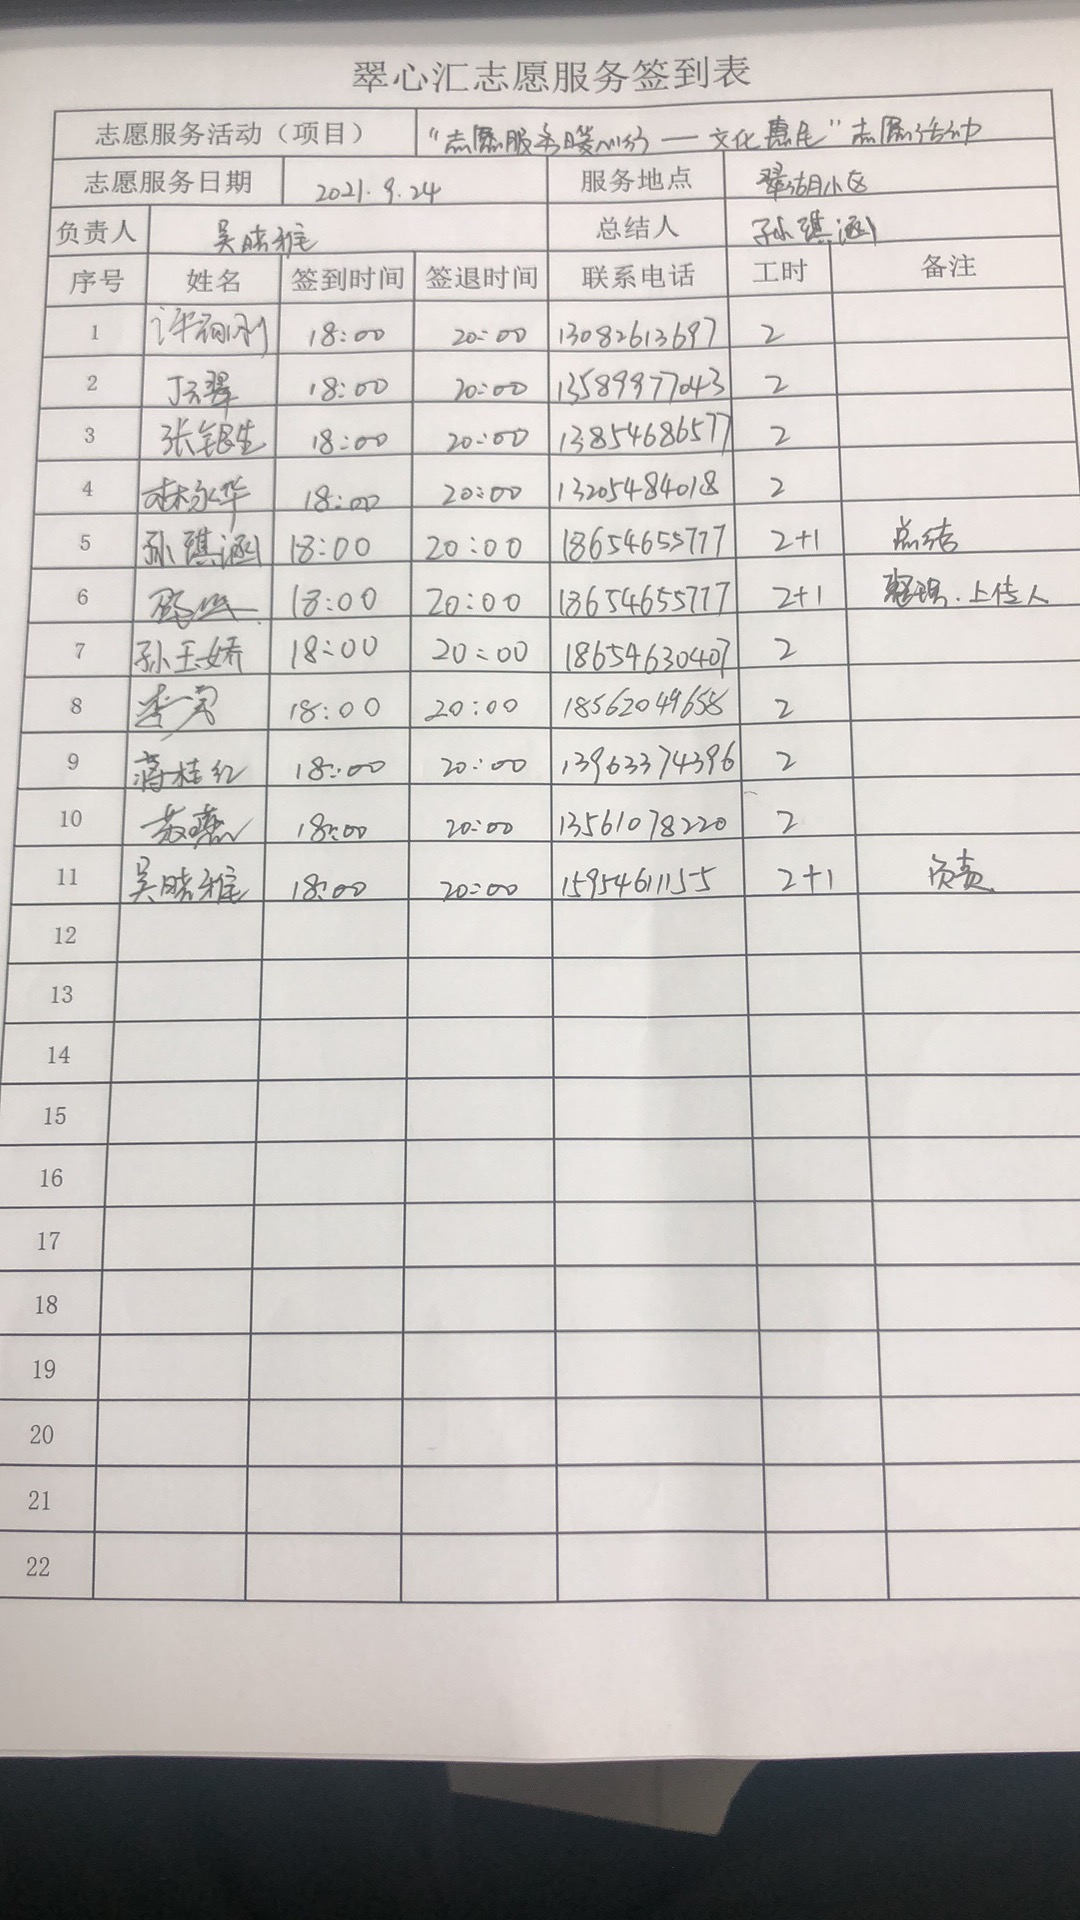 翠心汇志愿服务签到表
志愿服务活动（项目） “志愿服务暖人心——文化惠民”志愿活动
志愿服务日期 2021.9.24 服务地点 翠湖小区
负责人 吴晓雅 总结人 孙琪涵
序号 姓名 签到时间 签退时间 联系电话 工时 备注
1 18:00 20:00 13082613697 2
2 丁云翠 18:00 20:00 13589977043 2
3 张银生 18:00 20:00 13854686577 2
4 林永华 18:00 20:00 13205484018 2
5 孙琪涵 18:00 20:00 18654655777 2+1 总结
6 18:00 20:00 18654655777 2+1 整理、上传人
7 孙玉娇 18:00 20:00 18654630407 2
8 18:00 20:00 18562049658 2
9 蒋桂红 18:00 20:00 13963374396 2
10 18:00 20:00 13561078220 2
11 吴晓雅 18:00 20:00 15954611155 2+1 负责
12
13
14
15
16
17
18
19
20
21
22